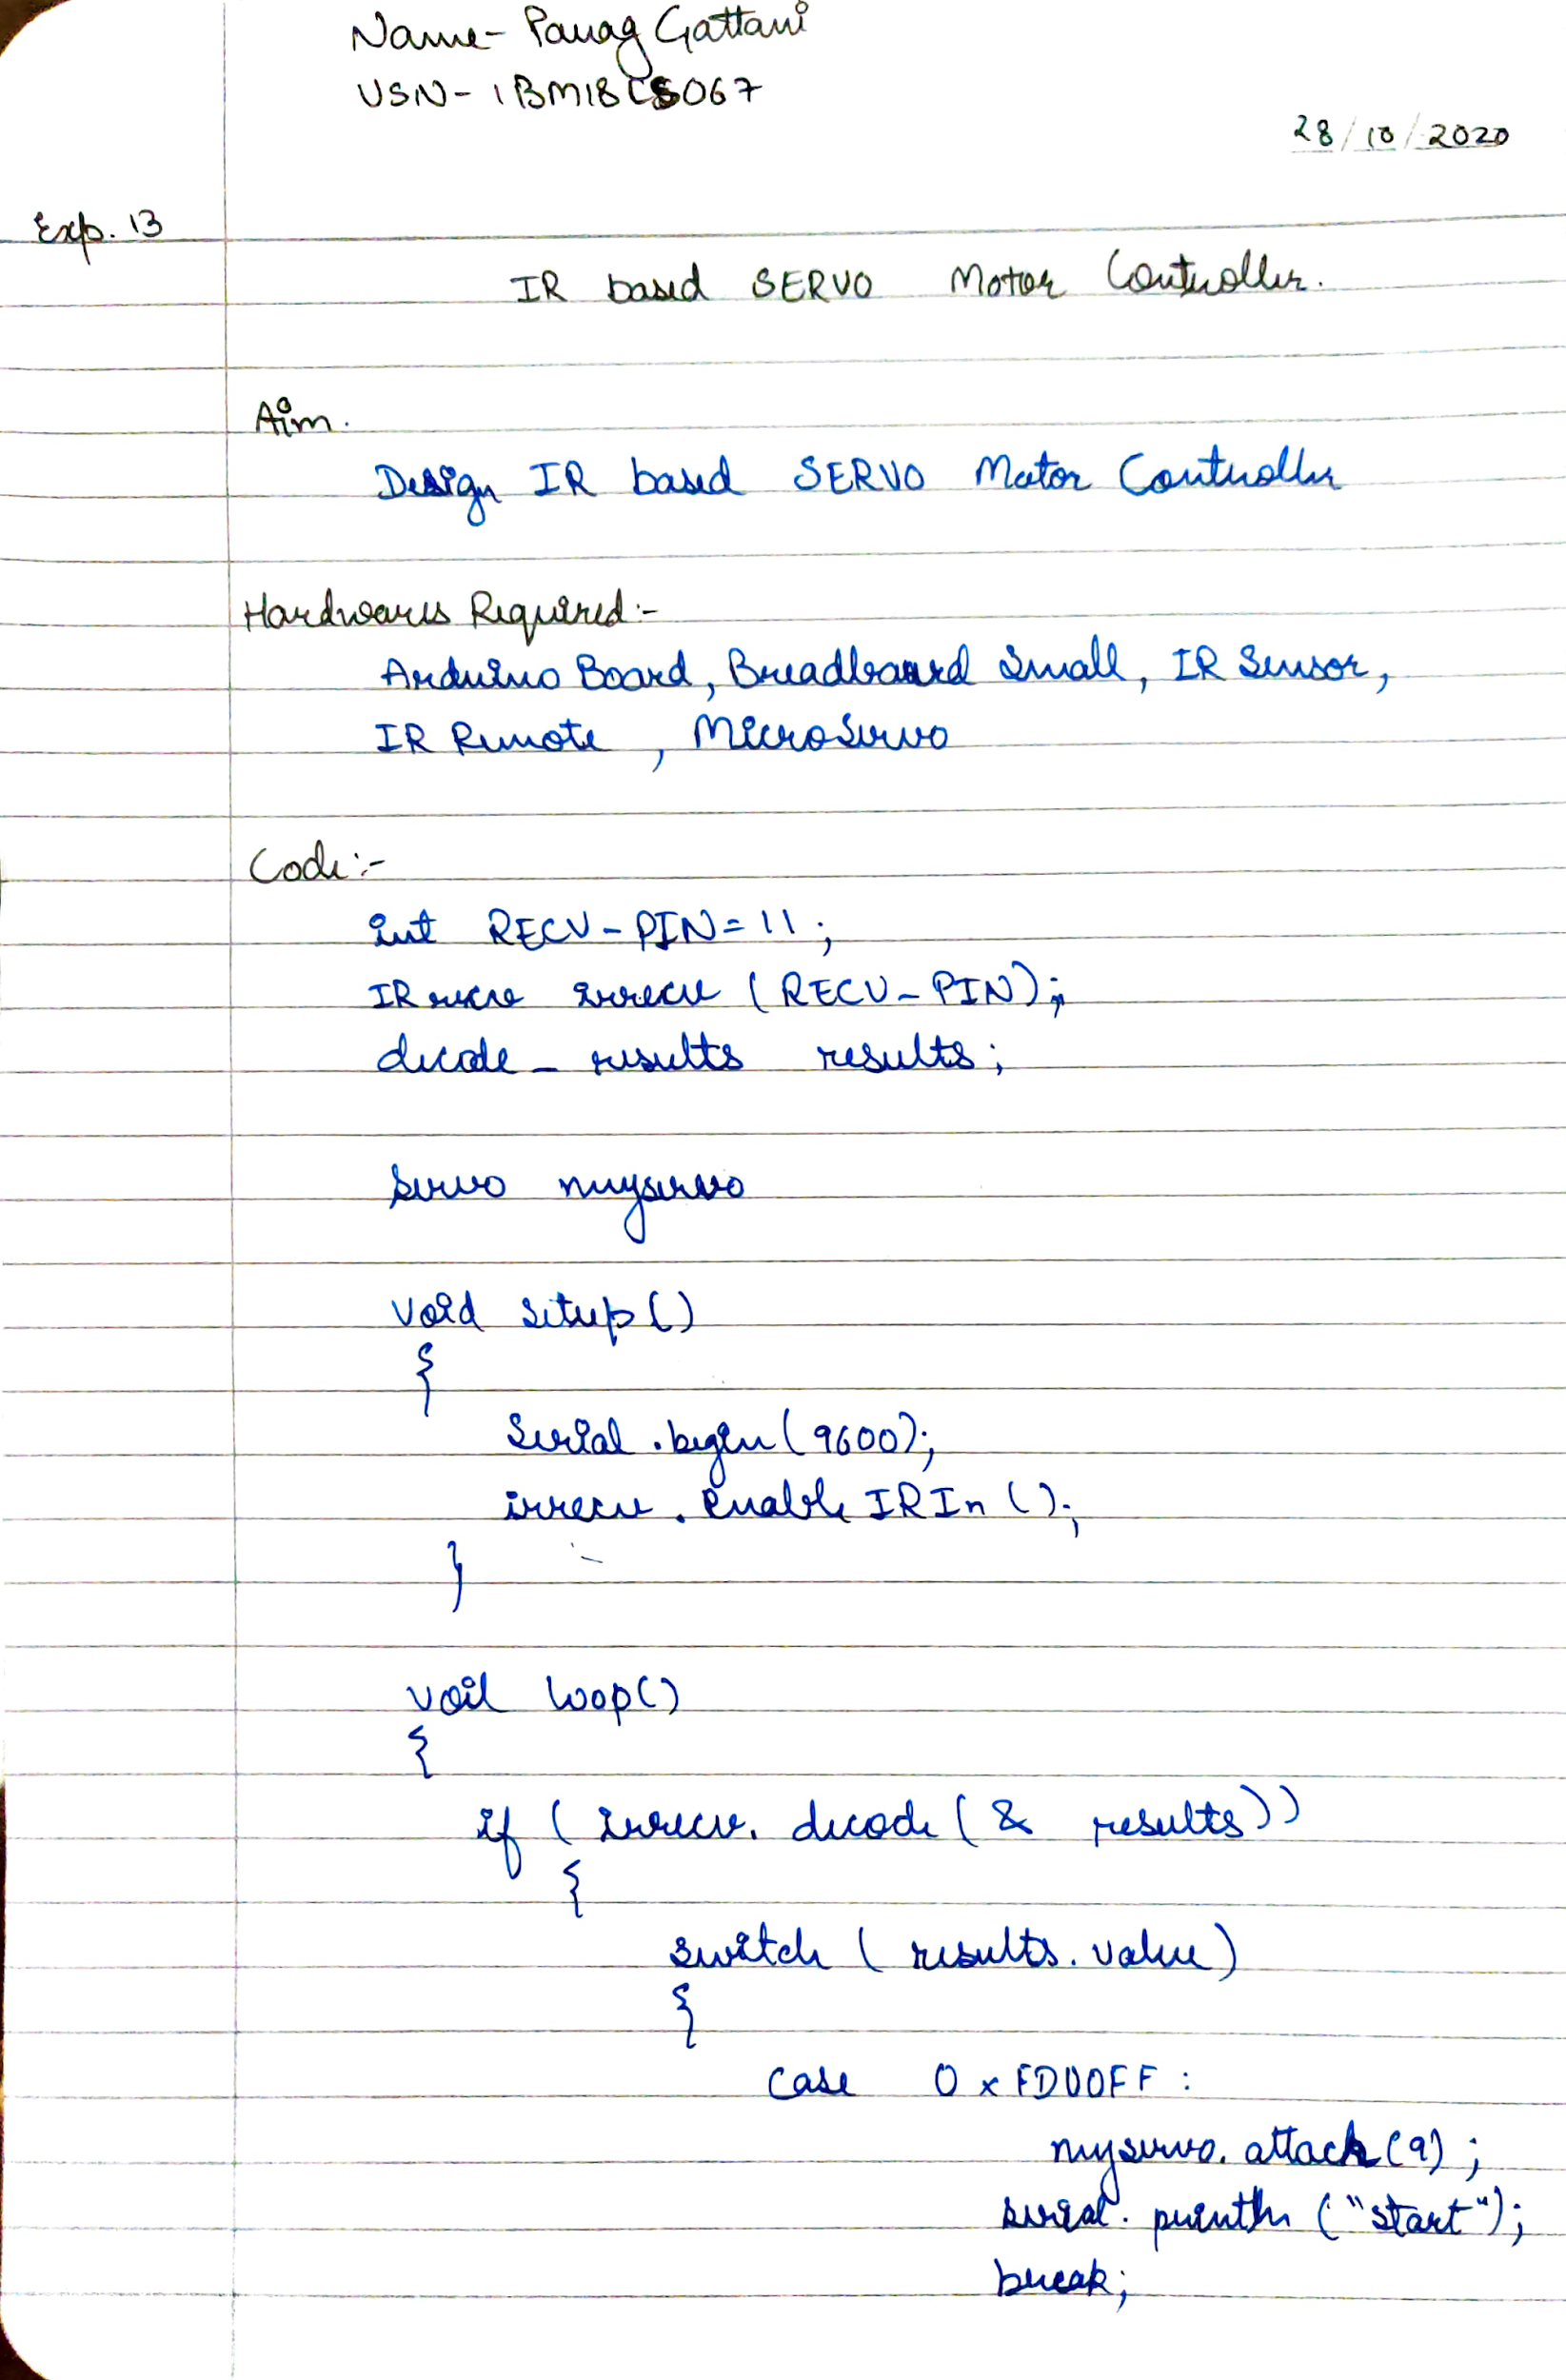 Name- Parag Gattani
USN- 1BM18CS067
28/10/2020
Exp. 13
IR based SERVO Motor Controller.
Aim.
Design IR based SERVO Motor Controller
Hardwares Required:-
Arduino Board, Breadboard Small, IR Sensor,
IR Remote, MicroServo
Code:-
int RECV_PIN=11;
IRrecv irrecv (RECV_PIN);
decode_results results;
Servo myservo
void setup()
{
Serial.begin(9600);
irrecv.enableIRIn();
}
void loop()
{
if (irrecv.decode(& results))
{
switch (results.value)
{
case 0xFD00FF:
myservo.attach(9);
Serial.println("start");
break;